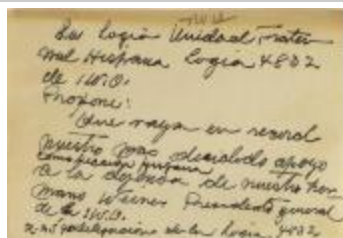 La Logia Unidad Frater-
nal Hispana Logia 4832
de I.W.O.
Propone:
Que vaya en record
nuestro mas decidido apoyo
a la defensa de nuestro her-
mano Weiner Presidente general
de la I.W.O.
delegacion de la Logia 4832